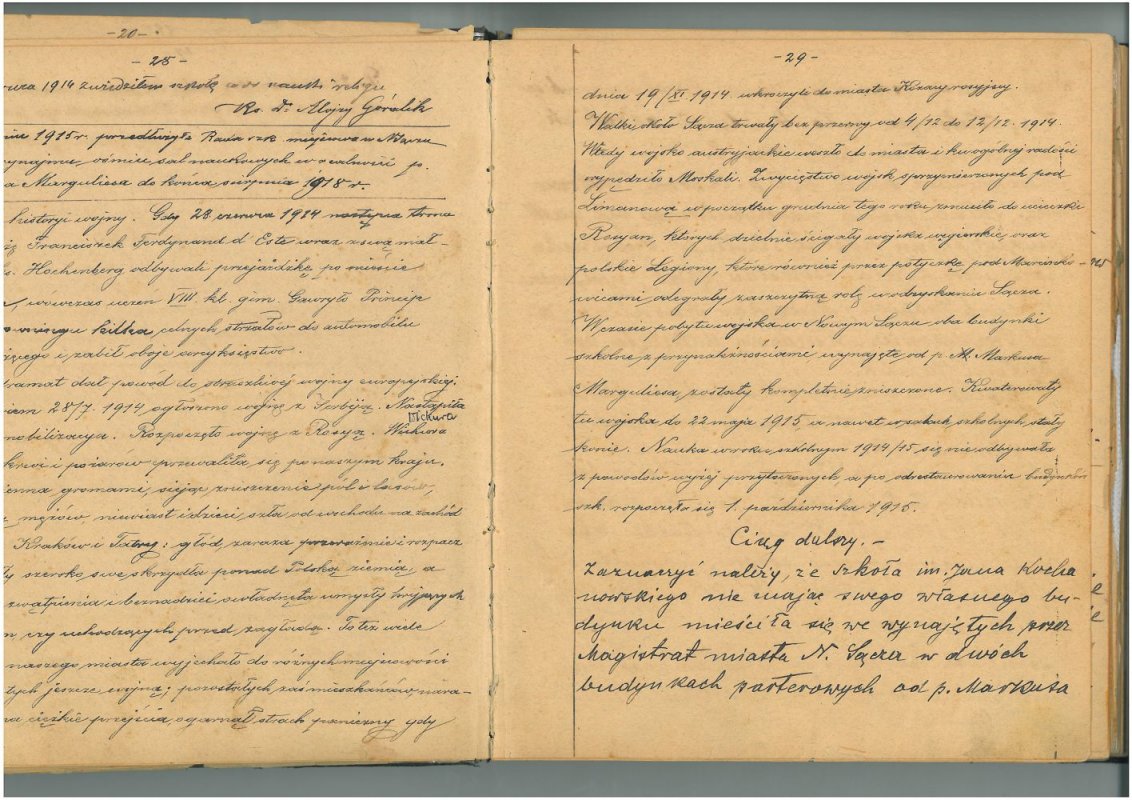 -20-
-28-
1914 zwiedziłem szkołę nauki religii
Ks. Dr Alojzy Góralik
1915 r. przedłużyła Rada szk. miejscowa w N. Sączu
ośmiu sal naukowych w realności p.
a Marguliesa do końca sierpnia 1918 r.
historyi wojny. Gdy 28 czerwca 1914 następca tronu
Franciszek Ferdynand d'Este wraz z swą mał-
Hochenberg odbywali przejażdżkę po mieście
, wówczas uczeń VIII kl. gim. Gawryło Princip
kilka celnych strzałów do automobilu
i zabił oboje arcyksięstwo.
dramat dał powód do straszliwej wojny europejskiej.
28/7. 1914 ogłoszono wojnę z Serbiją. Nastąpiła
mobilizacya. Rozpoczęto wojnę z Rosyą. Wichura
krwi i pożarów przewaliła się po naszym kraju.
gromami, siejąc zniszczenie pól i lasów,
mężów niewiast i dzieci, szła od wschodu na zachód
Kraków i Tatry; głód, zaraza przerażenie i rozpacz
szeroko swe skrzydła ponad Polską ziemią, a
zwątpienia i beznadziei owładnęła umysły
czy uchodzących przed zagładą. To też wiele
naszego miasta wyjechało do różnych miejscowości
jeszcze wojną; pozostałych zaś mieszkańców nara-
na ciężkie przejścia, ogarnął strach paniczny gdy
-29-
dnia 19/XI 1914. wkroczyli do miasta Kozacy rosyjscy.
Walki około Sącza trwały bez przerwy od 4/12 do 12/12. 1914.
Wtedy wojsko austryjackie weszło do miasta i ku ogólnej radości
wypędziło Moskali. Zwycięstwo wojsk sprzymierzonych pod
Limanową w początku grudnia tego roku, zmusiło do ucieczki
Rosyan, których dzielnie ścigały wojska węgierskie, oraz
polskie Legiony, które również przez potyczkę pod Marcinko-
wicami, odegrały zaszczytną rolę w odzyskaniu Sącza.
W czasie pobytu wojska w Nowym Sączu oba budynki
szkolne z przynależnościami wynajęte od p. M. Markusa
Marguliesa, zostały kompletnie zniszczone. Kwaterowały
tu wojska do 22 maja 1915, a nawet w salach szkolnych stały
konie. Nauka w roku szkolnym 1914/15 się nie odbywała
z powodów wyżej przytoczonych a po odrestaurowaniu budynków
szk. rozpoczęła się 1. października 1915.
Ciąg dalszy. -
Zaznaczyć należy, że szkoła im. Jana Kocha
nowskiego nie mając swego własnego bu-
dynku mieściła się we wynajętych przez
Magistrat miasta N. Sącza w dwóch
budynkach parterowych od p. Markusa